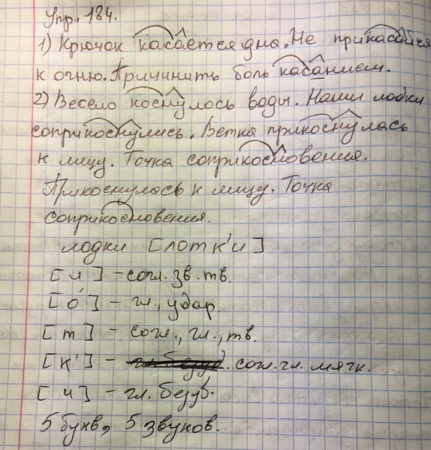 Упр. 184.
1) Крючок касается дна. Не прикасайся
к огню. Причинить боль касанием.
2) Весело коснулось воды. Наши лодки
соприкоснулись. Ветка прикоснулась
к лицу. Точка соприкосновения.
Прикоснулась к лицу. Точка
соприкосновения.
лодки [лотк'и]
[л] – согл. зв. тв.
[о́] – гл, удар.
[т] – согл., гл., тв.
[к'] – согл. гл. мягк.
[и] – гл. безуд.
5 букв, 5 звуков.